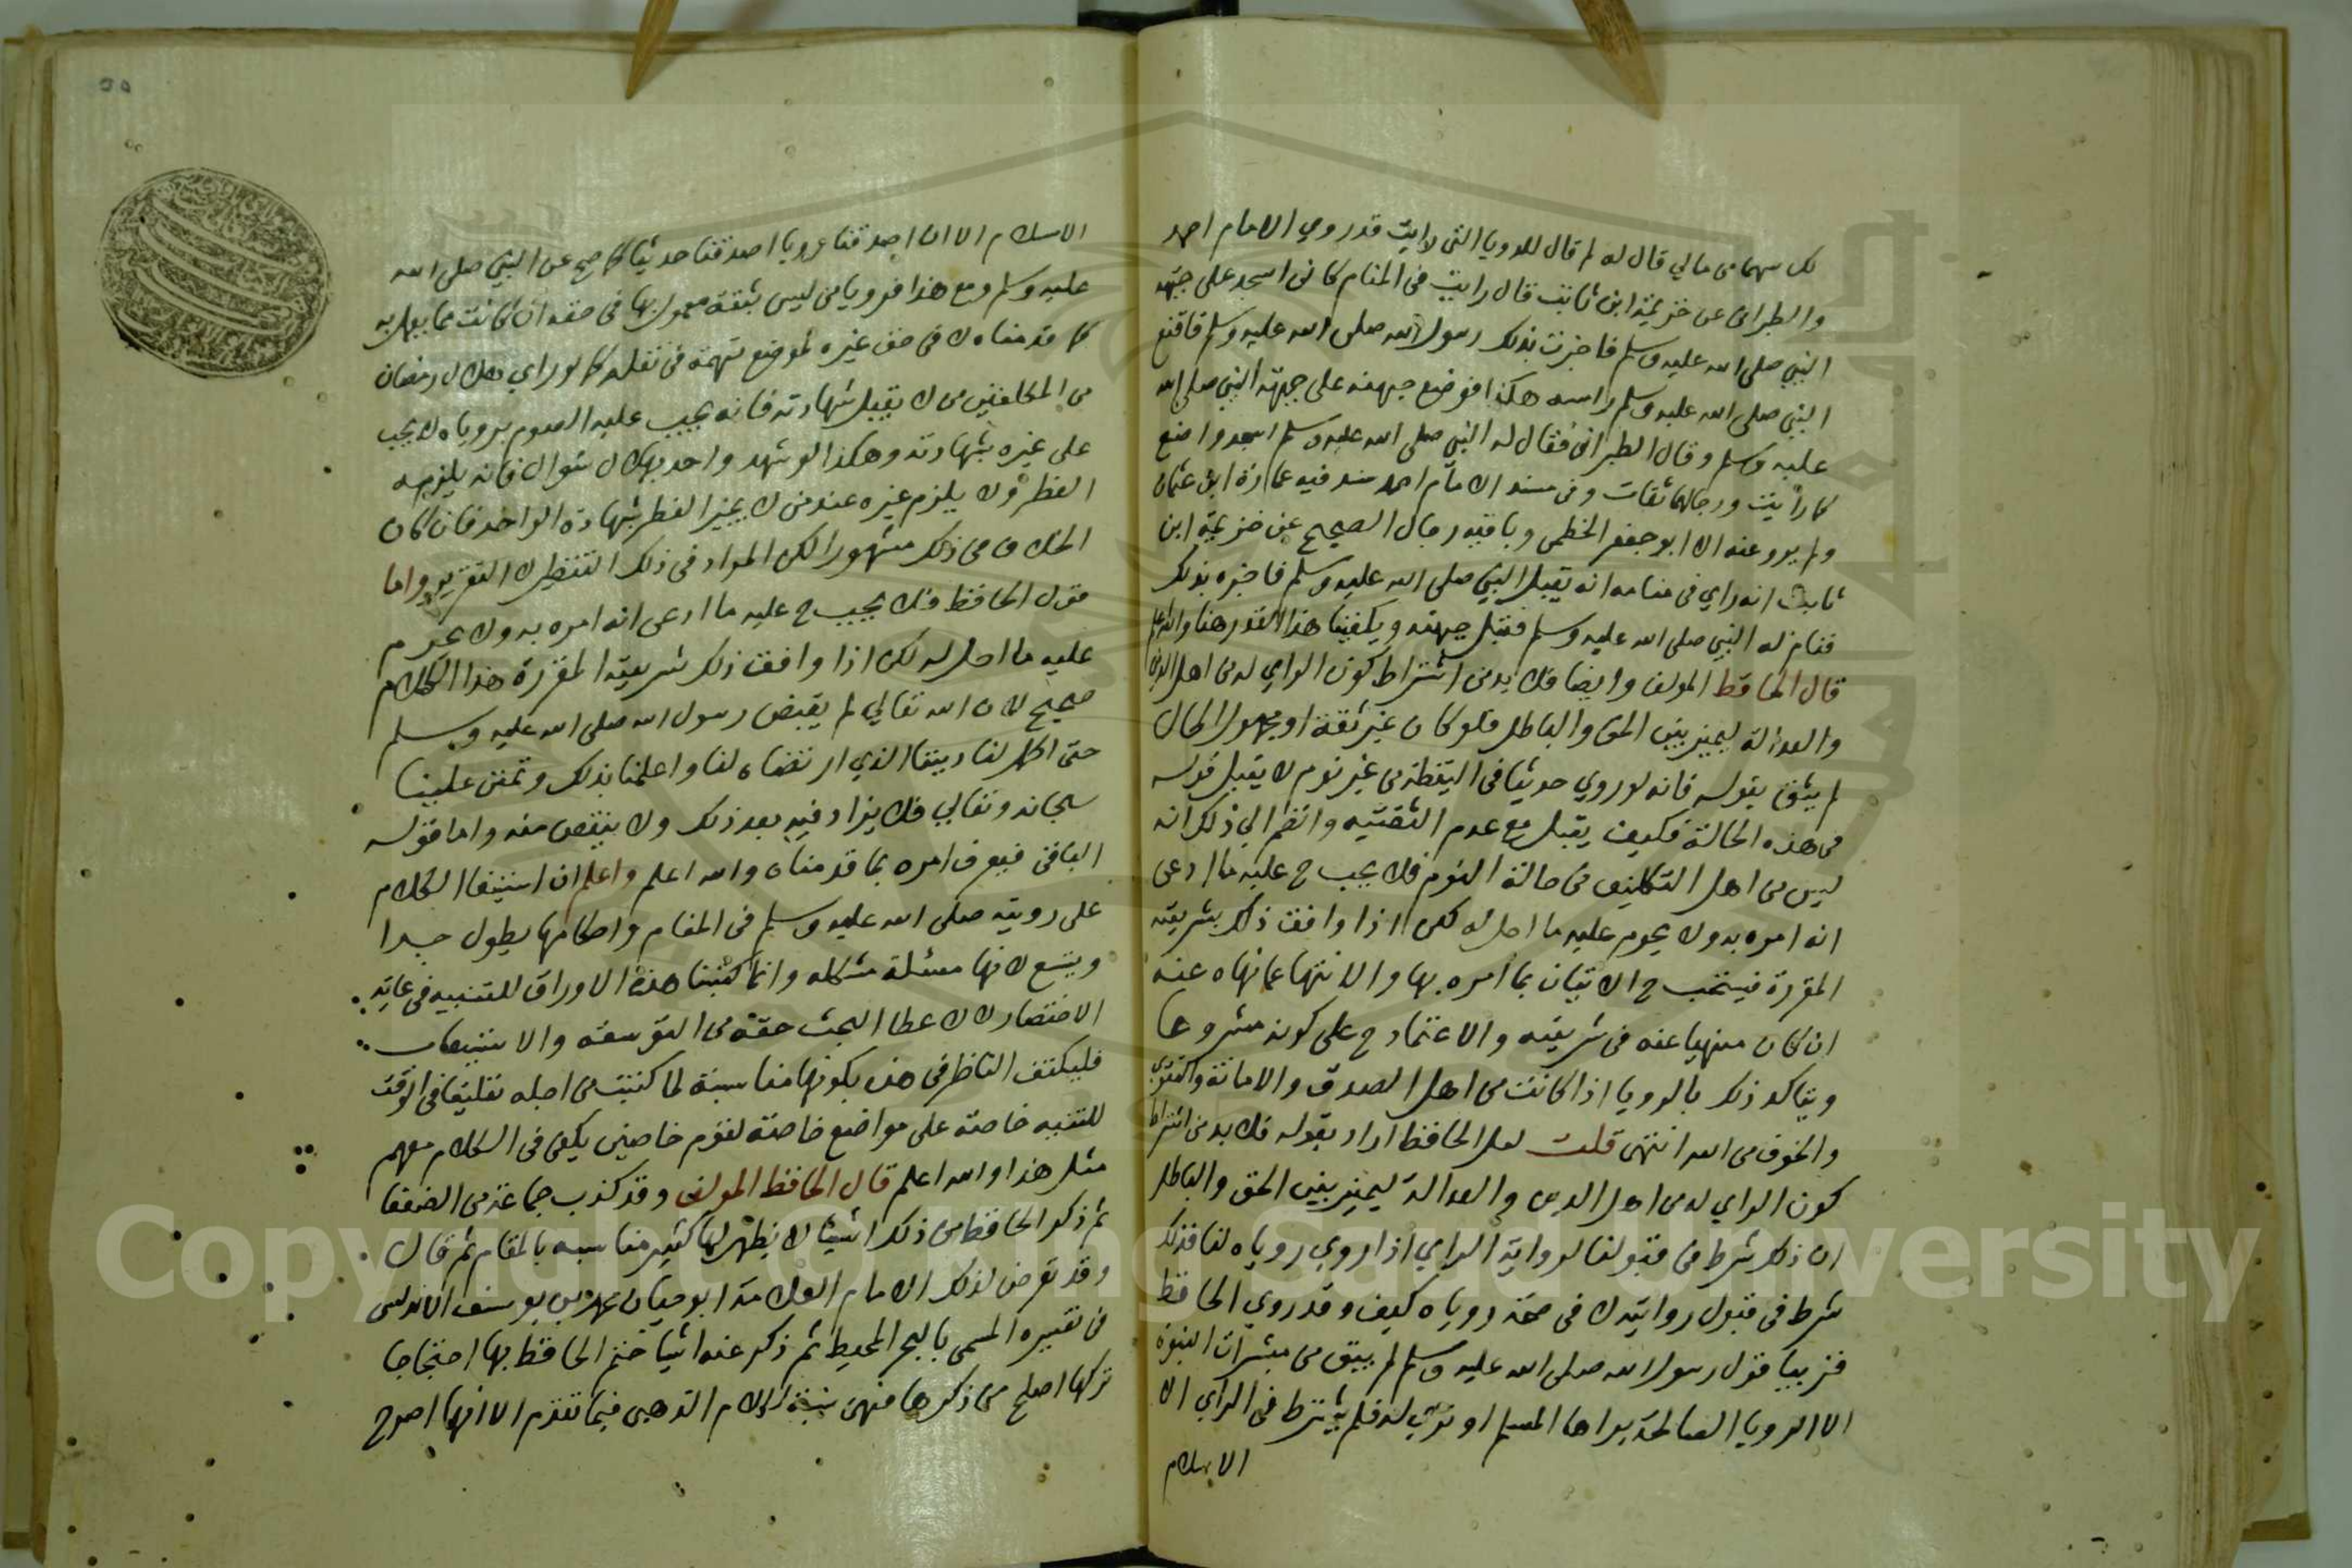 لك سهما من مالي قال له لم قال للرويا التي رايت قد روي الامام احمد
والطبراني عن خزيمة ابن ثابت قال رايت في المنام كاني اسجد على جبهة
النبي صلى الله عليه وسلم فاخبرت بذلك رسول الله صلى الله عليه وسلم فاقنع
النبي صلى الله عليه وسلم راسه هكذا فوضع جبهته على جبهة النبي صلى الله
عليه وسلم وقال الطبراني فقال له النبي صلى الله عليه وسلم اسجد واصنع
كما رايت ورجالهما ثقات وفي مسند الامام احمد سند فيه عمارة ابن عثمان
ولم يرو عنه الا ابو جعفر الخطمي وباقيه رجال الصحيح عن خزيمة ابن
ثابت انه راي في منامه انه يقبل النبي صلى الله عليه وسلم فاخبره بذلك
فنام له النبي صلى الله عليه وسلم فقبل جبهته ويكفينا هذا القدر هنا والله اعلم
قال الحافظ المولف وايضا فلا بد من اشتراط كون الراي له من اهل الدين
والعدالة ليميز بين الحق والباطل فلو كان غير ثقة او مجهول الحال
لم يثق بقوله فانه لو روي حديثا في اليقظة من غير نوم لا يقبل قوله
في هذه الحالة فكيف يقبل مع عدم الثقتيه وانضم الي ذلك انه
ليس من اهل التكليف في حالة النوم فلا يجب ح عليه ما ادعى
انه امره به ولا يحرم عليه ما احل له لكن اذا وافق ذلك بشريعته
المقررة فيستحب ح الاتيان بما امره بها والانتها عما نهاه عنه
ان كان منهيا عنه في شريعته والاعتماد ح على كونه مشروعا
ويتاكد ذلك بالرويا اذا كانت من اهل الصدق والامانة والتقوي
والخوف من الله انتهى قلت لعل الحافظ اراد بقوله فلا بد من اشتراط
كون الراي له من اهل الدين والعدالة ليميز بين الحق والباطل
ان ذلك شرط في قبولنا لرواية الراي اذا روي روياه لنا فذلك
شرط في قبول روايته لا في صحة روياه كيف وقد روي الحافظ
قريبا قول رسول الله صلى الله عليه وسلم لم يبق من مبشرات النبوة
الا الرويا الصالحة يراها المسلم او تري له فلم يشترط في الراي الا
الاسلام
الاسلام الا ان اصدقنا رويا اصدقنا حديثا كما صح عن النبي صلى الله
عليه وسلم ومع هذا فرويا من ليس بثقة معمول بها في حقه ان كانت مما يعمل به
كما قدمناه لا في حق غيره لموضع تهمة في نقله كما لو راي هلال رمضان
من المكلفين من لا يقبل شهادته فانه يجب عليه الصوم بروياه ولا يجب
على غيره بشهادته وهكذا لو شهد واحد بهلال شوال فانه يلزمه
الفطر ولا يلزم غيره عند من لا يجيز الفطر بشهادة الواحد فان كان
الخلاف في ذلك مشهورا لكن المراد في ذلك التنظير لا التقرير واما
قول الحافظ فلا يجب ح عليه ما ادعى انه امره به ولا يحرم
عليه ما احل له لكن اذا وافق ذلك شريعته المقررة هذا الكلام
صحيح لان الله تعالي لم يقبض رسول الله صلى الله عليه وسلم
حتى اكمل لنا ديننا الذي ارتضاه لنا واعلمنا بذلك وتمنن علينا
سبحانه وتعالي فلا يزاد فيه بعد ذلك ولا ينقص منه واما قوله
الباقي فيعرف امره بما قدمناه والله اعلم واعلم ان استيفا الكلام
على رويته صلى الله عليه وسلم في المنام واحكامها يطول جدا
ويتسع لانها مسئلة مشكله وانما كتبنا هذه الاوراق للتنبيه في غاية
الاختصار لا لاعطا البحث حقه من التوسعة والاستيعاب
فليكتف الناظر في هذه بكونها مناسبة لما كتبت من اجله تعليقا في الوقت
للتنبيه خاصة على مواضع خاصة لقوم خاصين يكفي في الكلام معهم
مثل هذا والله اعلم قال الحافظ المولف وقد كذب جماعة من الضعفا
ثم ذكر الحافظ من ذلك اشيا لا يظهر لها كثير مناسبه بالمقام ثم قال
وقد تعرض لذلك الامام العلامة ابو حيان محمد بن يوسف الاندلسي
في تفسيره المسمى بالبحر المحيط ثم ذكر عنه اشيا ختم الحافظ بها احتجاجا
تركها اصلح من ذكرها فهي شبيه لكلام الذهبي فيما تقدم الا انها اصرح